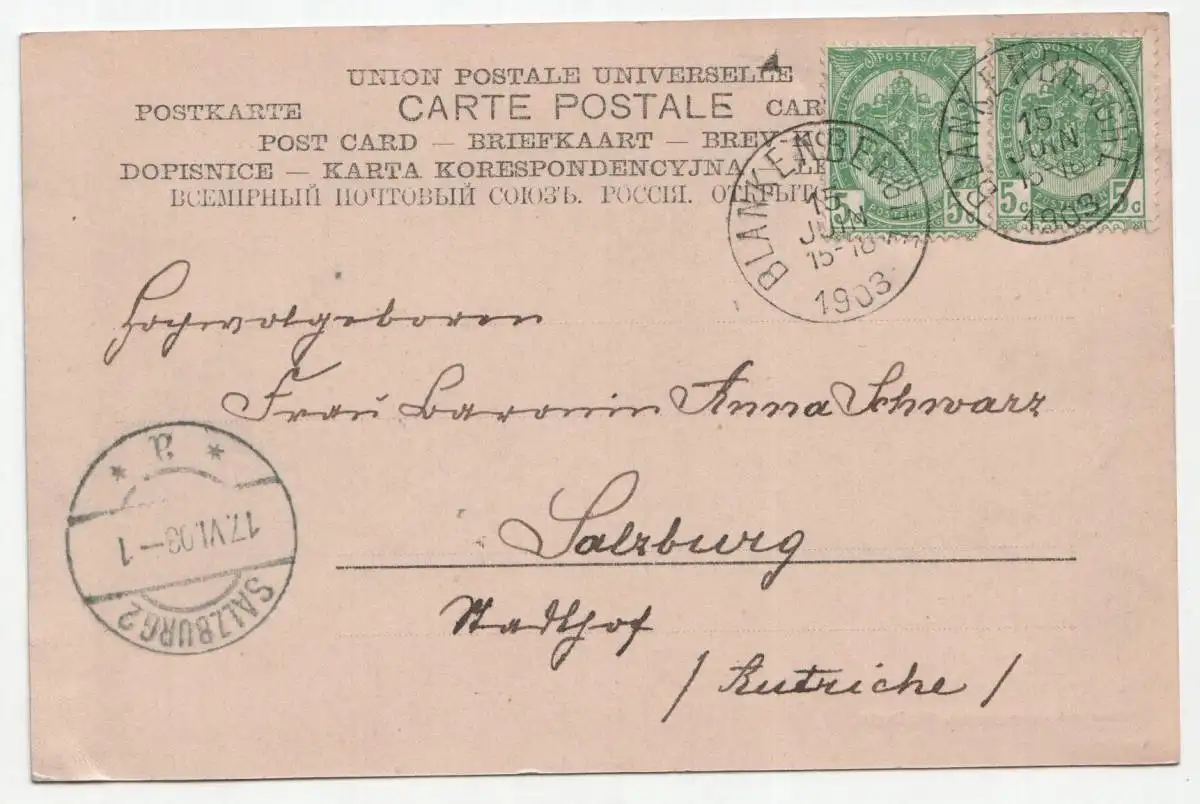 UNION POSTALE UNIVERSELLE
POSTKARTE CARTE POSTALE CAR
POST CARD — BRIEFKAART — BREV-KO
DOPISNICE — KARTA KORESPONDENCYJNA
ВСЕМІРНЫЙ ПОЧТОВЫЙ СОЮЗЪ. РОССІЯ. ОТКРЫТО
POSTES
5c 5c
POSTES
5c 5c
BLANKENBERG
15
JUIN
15-18
1903
BLANKENBERGHE
15
JUIN
15-18
1903
Hochwolgeboren
Frau Baronin Anna Schwarz
Salzburg
Stadthof
/ Autriche /
* a *
17.VI.03-1
SALZBURG 2